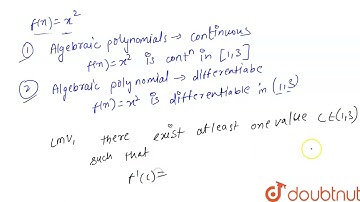 f(x) = x²
① Algebraic polynomials → continuous
f(x) = x² is contⁿ in [1,3]
② Algebraic polynomial → differentiabe
f(x) = x² is differentiable in (1,3)
LMV, there exist atleast one value c ∈ (1,3)
such that
f'(c) =
doubtnut